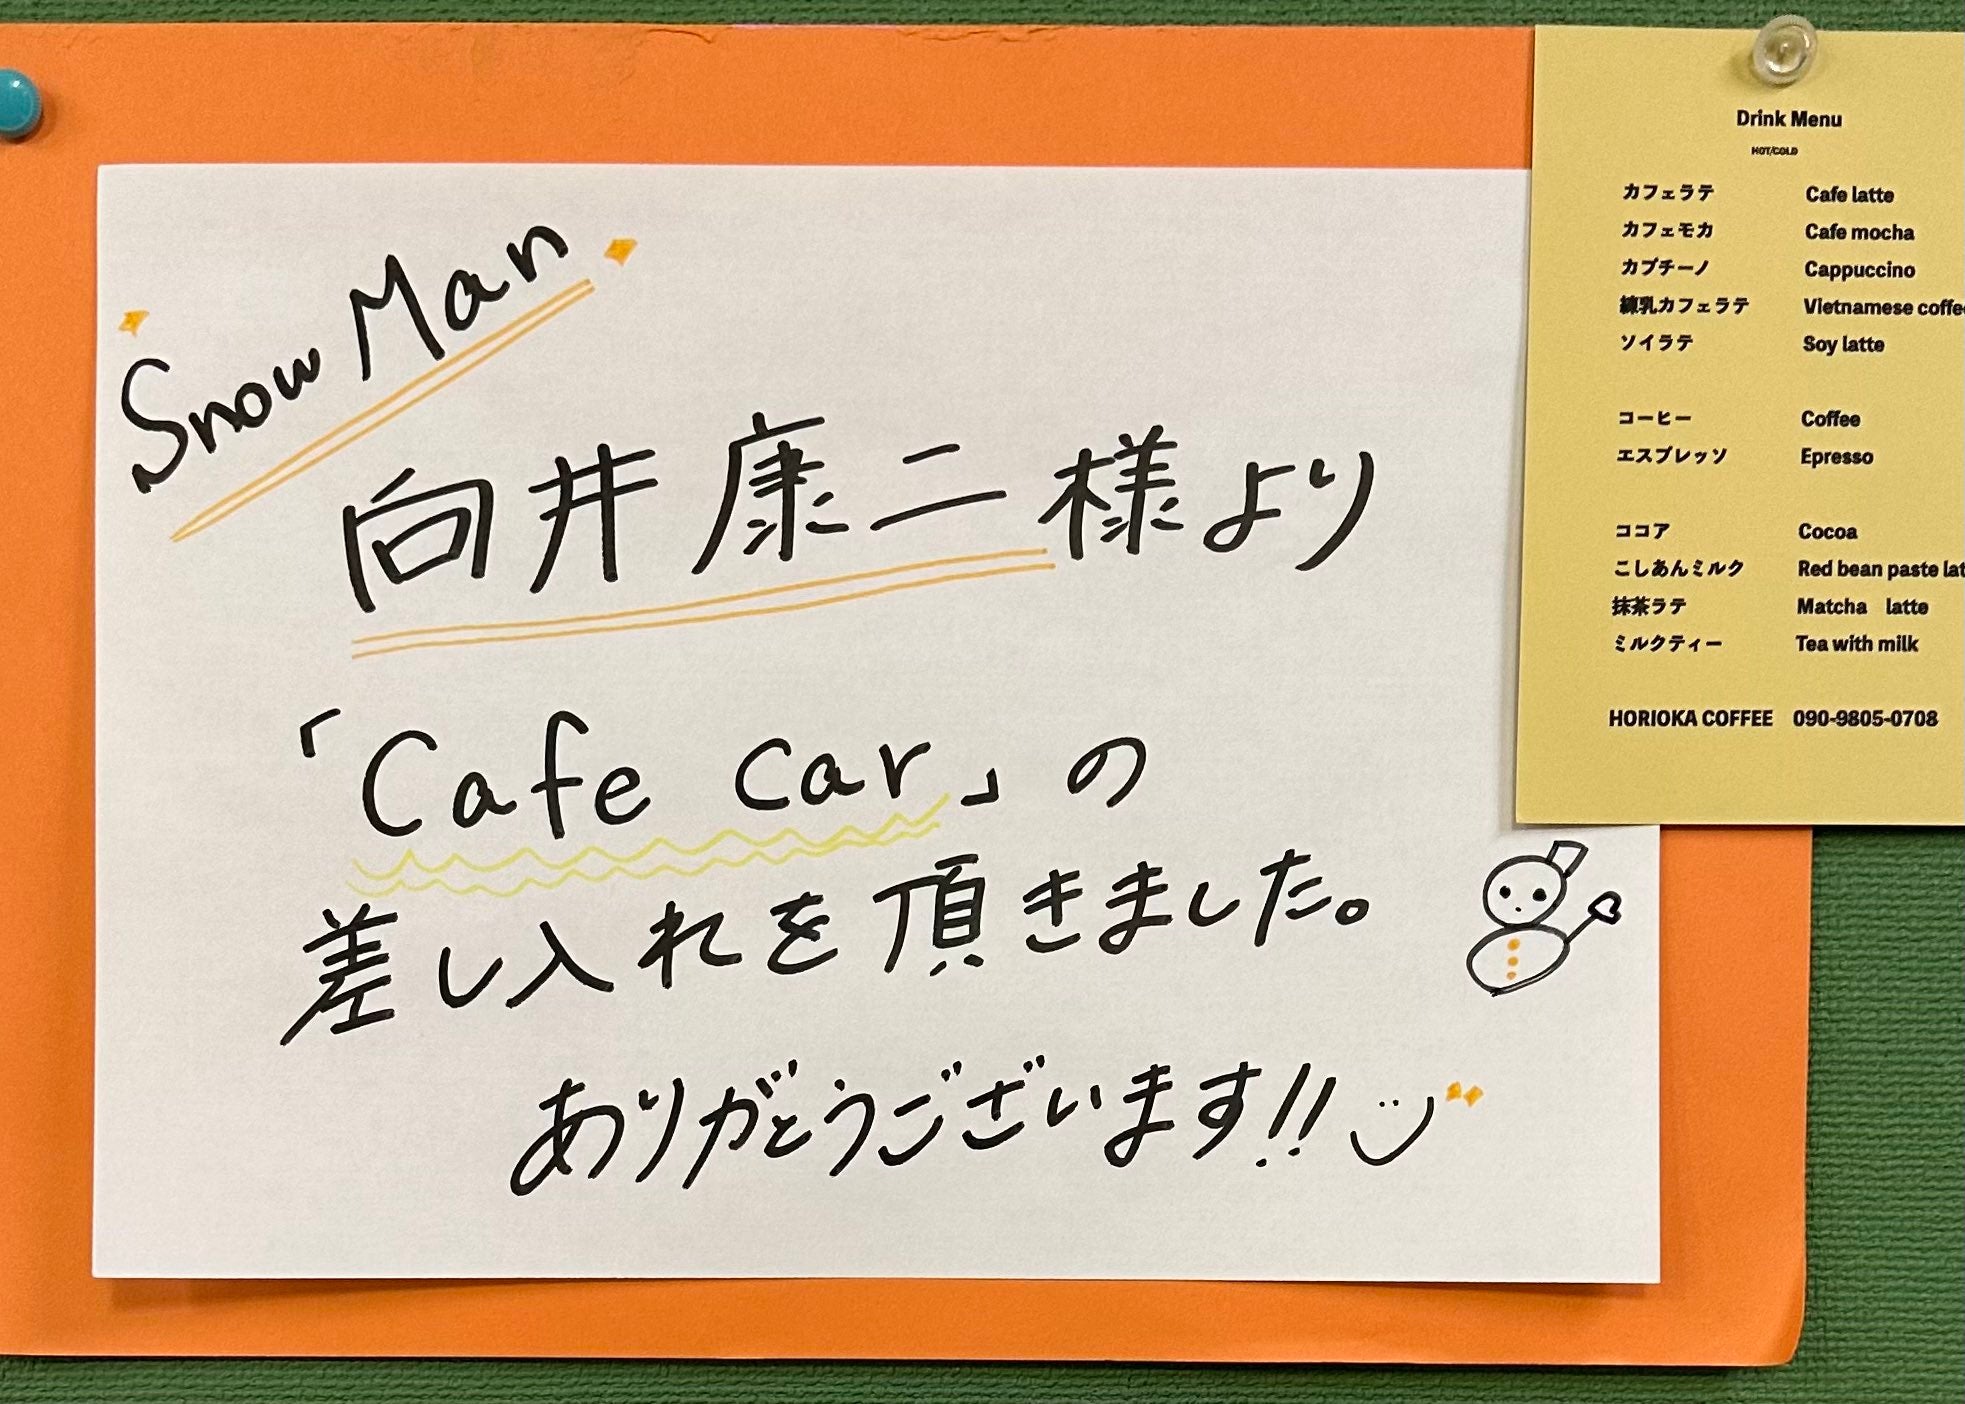 Snow Man
向井康二様より
「Cafe car」の
差し入れを頂きました。
ありがとうございます!!
Drink Menu
HOT/COLD
カフェラテ Cafe latte
カフェモカ Cafe mocha
カプチーノ Cappuccino
練乳カフェラテ Vietnamese coffe
ソイラテ Soy latte
コーヒー Coffee
エスプレッソ Epresso
ココア Cocoa
こしあんミルク Red bean paste lat
抹茶ラテ Matcha latte
ミルクティー Tea with milk
HORIOKA COFFEE 090-9805-0708